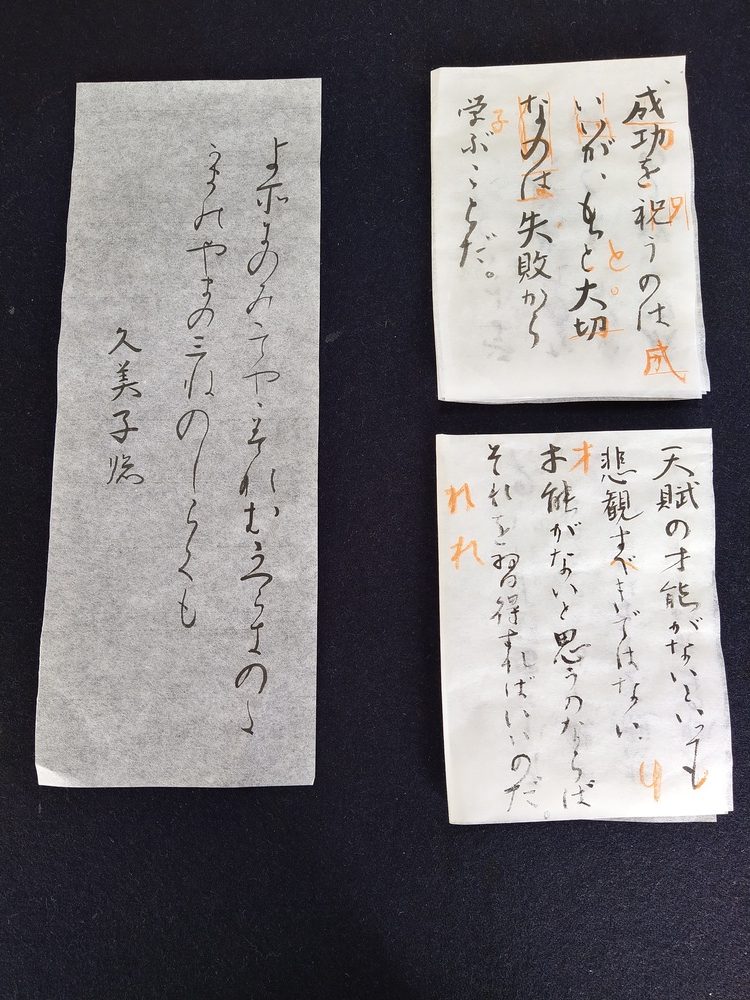 成功を祝うのは
いいが、もっと大切
なのは失敗から
学ぶことだ。
子
と。
成
天賦の才能がないといっても
悲観すべきではない。
才能がないと思うのならば
それを習得すればいいのだ。
才
れ
れ
り
よ所にのみみてやゝみなむかつらきのた
かまのやまの三ねのしらくも
久美子臨